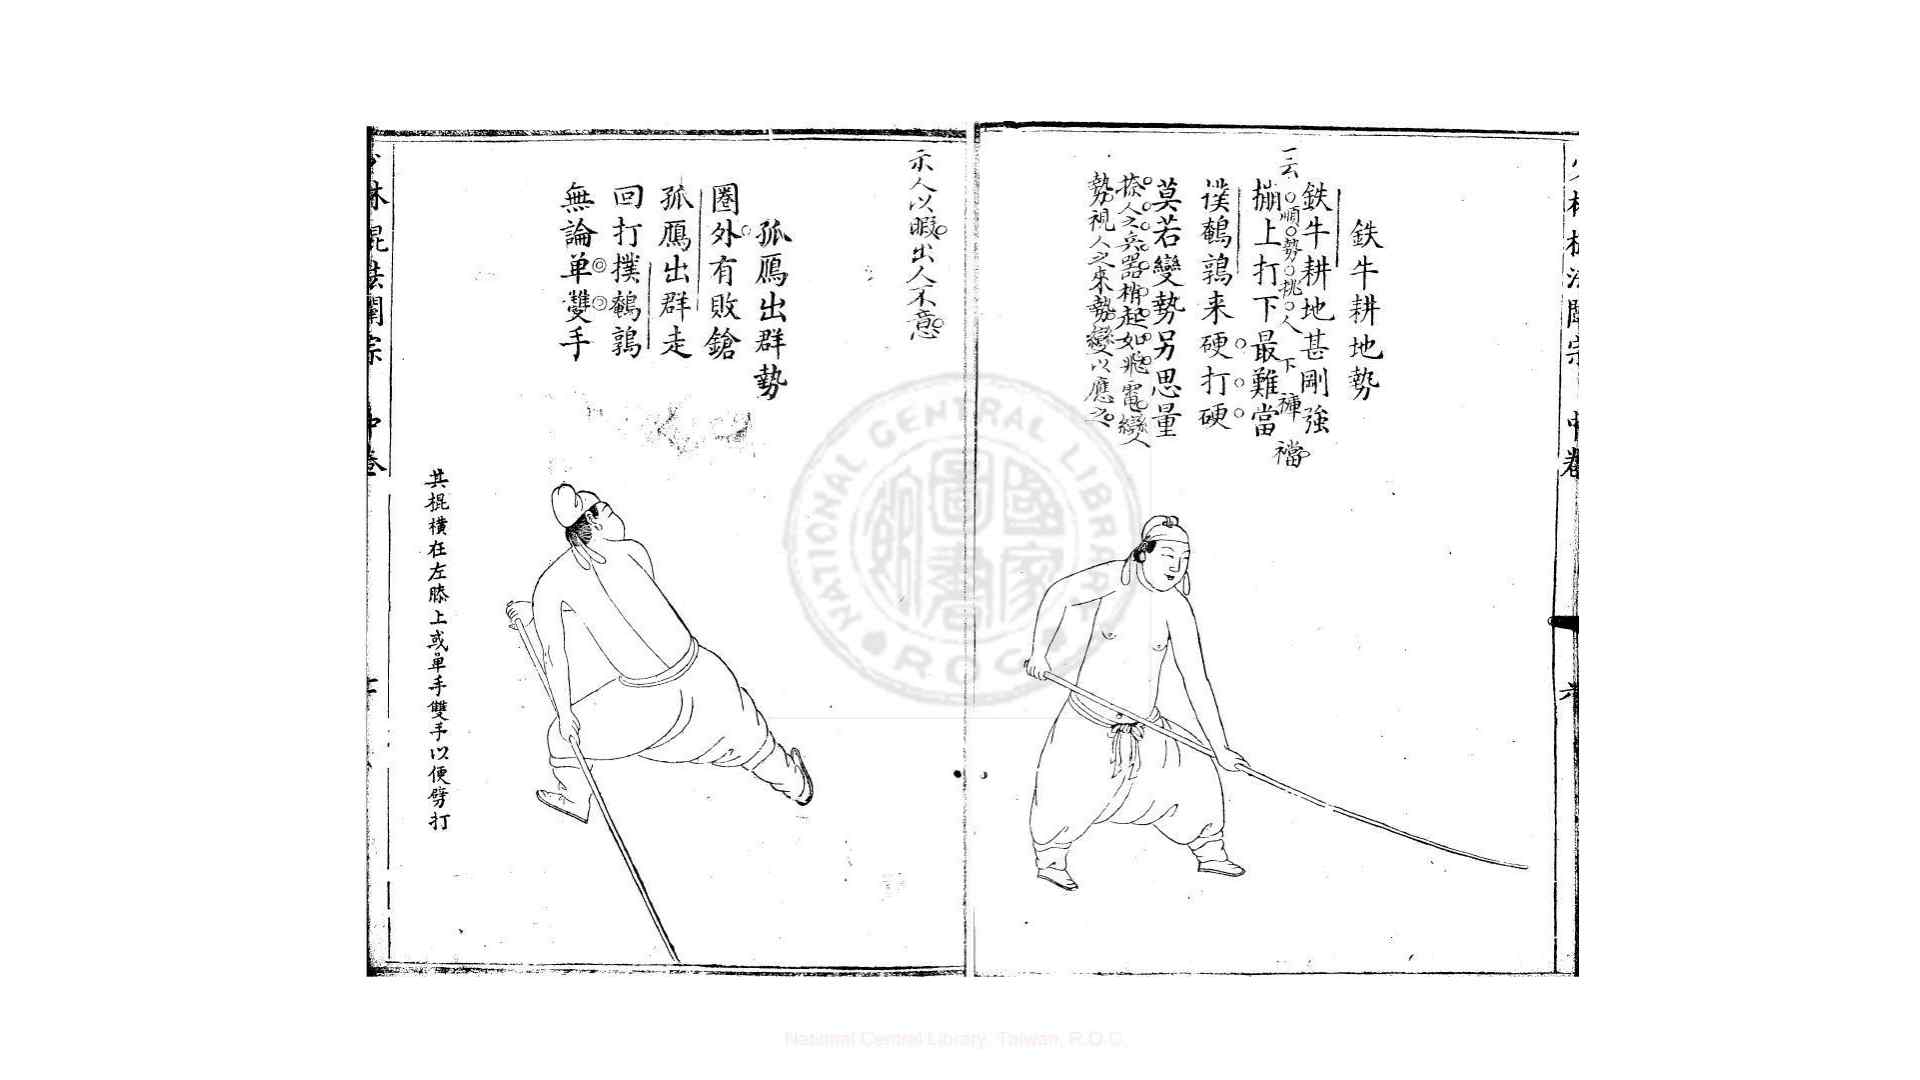 鉄牛耕地勢
一云順勢挑人下褲襠
鉄牛耕地甚剛強
搠上打下最難當
僕鵪鶉来硬打硬
莫若變勢另思量
人之兵器梢起如飛電變人
勢視人之來勢變以應之
示人以暇出人不意
孤鴈出群勢
圈外有敗鎗
孤鴈出群走
回打撲鵪鶉
無論单雙手
其棍橫在左膝上或单手雙手以便劈打
少林棍法闡宗 中卷
NATIONAL CENTRAL LIBRARY
國家圖書館
R.O.C
National Central Library, Taiwan, R.O.C.